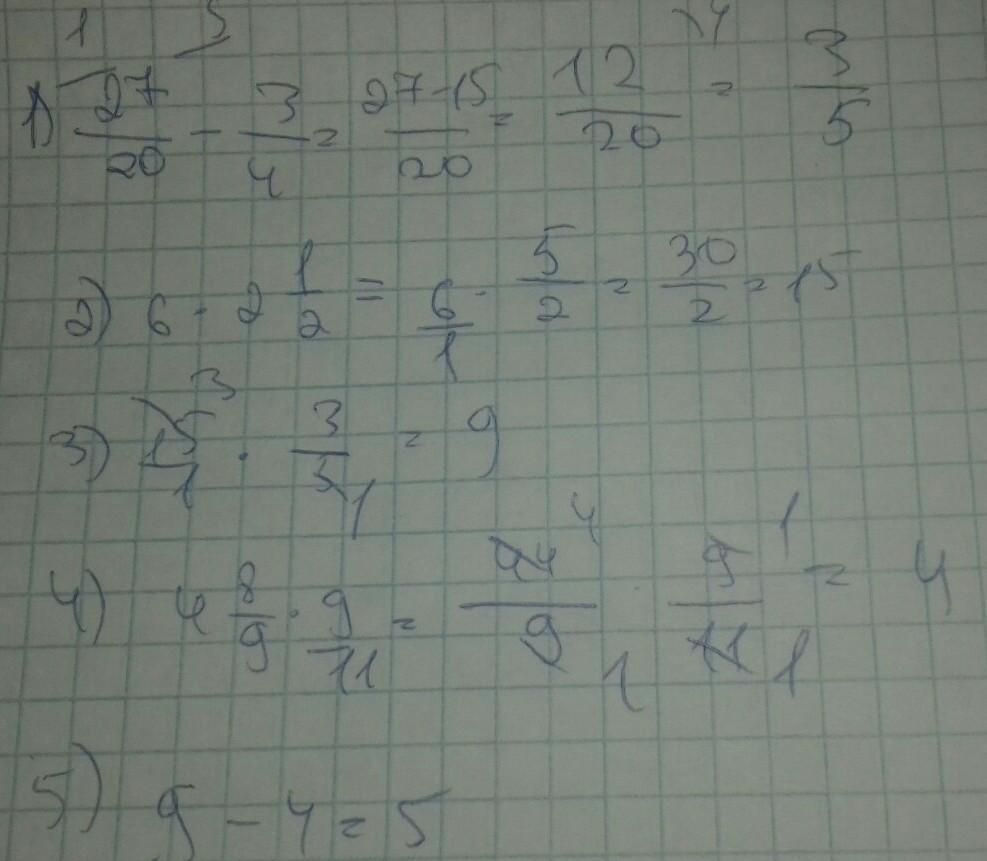 1 5 4
1) 27/20 - 3/4 = 27-15/20 = 12/20 = 3/5
2) 6 · 2 1/2 = 6/1 · 5/2 = 30/2 = 15
3) 15 3/1 · 3/5 1 = 9
4) 4 8/9 · 9/11 = 44 4/9 1 · 9 1/11 1 = 4
5) 9 - 4 = 5